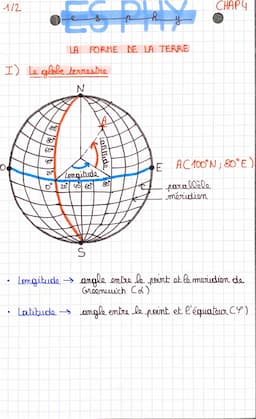 1/2
ES PHY
CHAP4
LA FORME DE LA TERRE
I) Le globe terrestre
N
A
latitude
longitude
O
E
A(100°N ; 80°E)
parallèle
méridien
S
• Longitude → angle entre le point et le meridien de
Greenwich (α)
• Latitude → angle entre le point et l'équateur (φ)